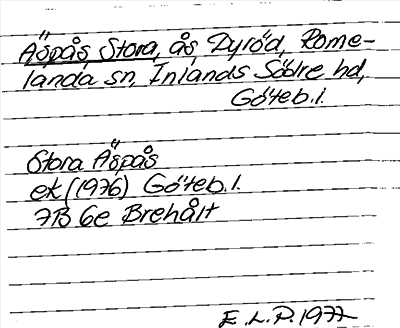 Äspås Stora, ås, Dyröd, Rome-
landa sn, Inlands Södre hd,
Göteb.l.
Stora Äspås
ek (1976) Göteb.l.
7B 6e Brehålt
E.L.P. 1977